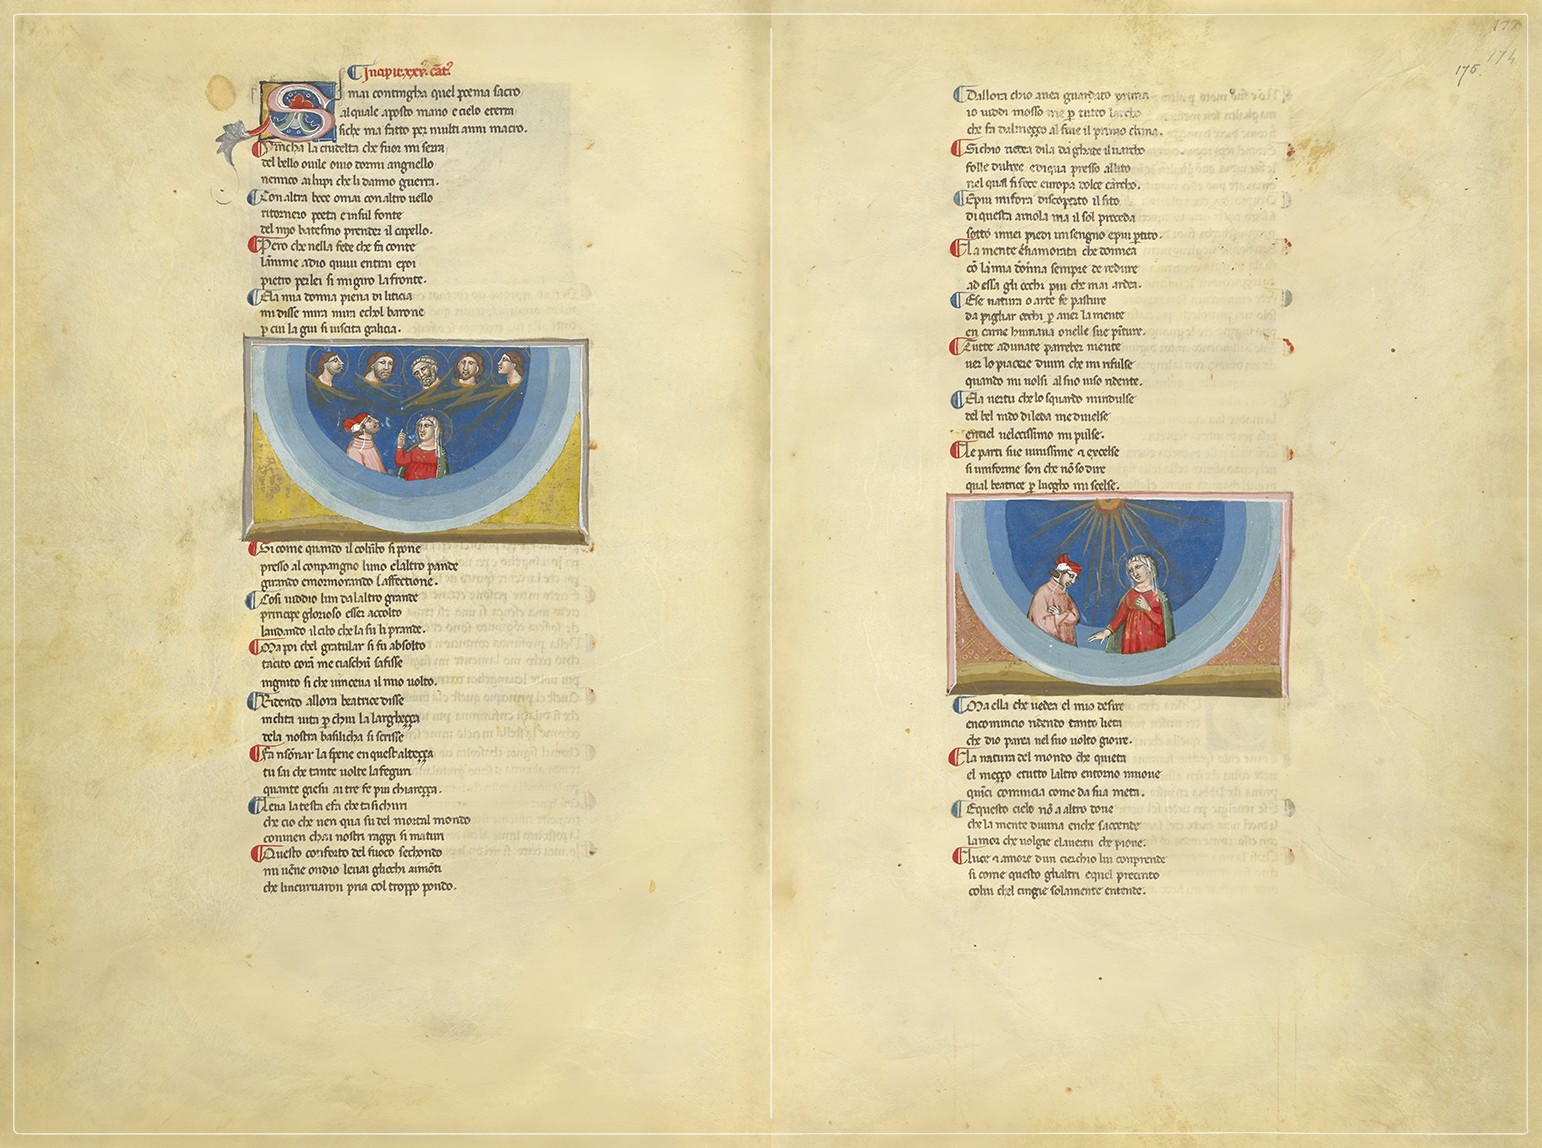 Incipit .xxv. cāt.
Se mai contingha quel poema sacro
al quale aposto mano e cielo eterra
siche ma fatto per multi anni macro.
Vincha la crudelta che fuor mi serra
del bello ouile ouio dormi angnello
nemico ai lupi che li danno guerra.
Con altra boce omai con altro uello
ritornero poeta e in sul fonte
del mio batesmo prender il capello.
Pero che nella fede che fa conte
lanime adio quiui entrai epoi
pietro per lei si mi giro la fronte.
Ela mia donna piena di liticia
mi disse mira mira echol barone
p cui la giu si uiscita galicia.
Si come quando il colūbo si pone
presso al conpangno luno elaltro pande
girando emormorando laffectione.
Cosi uiddio lun da laltro grande
principe glorioso esser accolto
laudando il cibo che la su li prande.
Ma poi chel gratular si fu absolto
tacito corā me ciaschū safisse
ingnito si che uinceua il mio uolto.
Ridendo allora beatrice disse
inclita uita p chui la larghezza
dela nostra basilicha si scrisse
Fa risōnar la spene en quest altezza
tu sai che tante uolte la feguri
quante giesu ai tre fe piu chiarezza.
Leua la testa efa che tasichuri
che cio che uen qua su del mortal mondo
conuen chai nostri raggi si maturi
Questo conforto del fuoco sechondo
mi uēne ondio leuai gliocchi aimōti
che lincuruaron pria col troppo pondo.
176
174
Dallora chio auea guardato prima
io uiddi mosso me p tutto larcho
che fa dal mezzo al fine il primo clima.
Sichio uedea dila da ghade il uarcho
folle dulixe ediqua presso allito
nel qual si fece europa dolce carcho.
Epiu mi fora discoperto il sito
di questa aiuola ma il sol procedea
sotto imiei piedi un sengno epiu partito.
La mente ēnamorata che donnea
cō la mia dōnna sempre de redure
ad essa gli occhi piu che mai ardea.
Ese natura o arte fe pasture
da pigliar occhi p auer la mente
en carne humana onelle sue pīture.
Tutte adunate parreber mente
uer lo piacere diuin che mi rifulse
quando mi uolsi al suo uiso ridente.
Ela uertu che lo sguardo mindulse
del bel nido di leda me diuelse
en ciel uelocissimo mi pulse.
Le parti sue uiuissime 7 excelse
si uniforme son che nō so dire
qual beatrice p luogho mi scelse.
Ma ella che uedea el mio desire
encomincio ridendo tanto lieta
che dio parea nel suo uolto gioire.
La natura del mondo che quieta
el mezzo etutto laltro entorno muoue
quīci comincia come da sua meta.
Equesto cielo nō a altro doue
che la mente diuina enche saccende
lamor che uolgie elauertu che pione.
Luce 7 amore dun cierchio lui comprende
si come questo ghaltri equel precinto
colui chel cingie solamente entende.